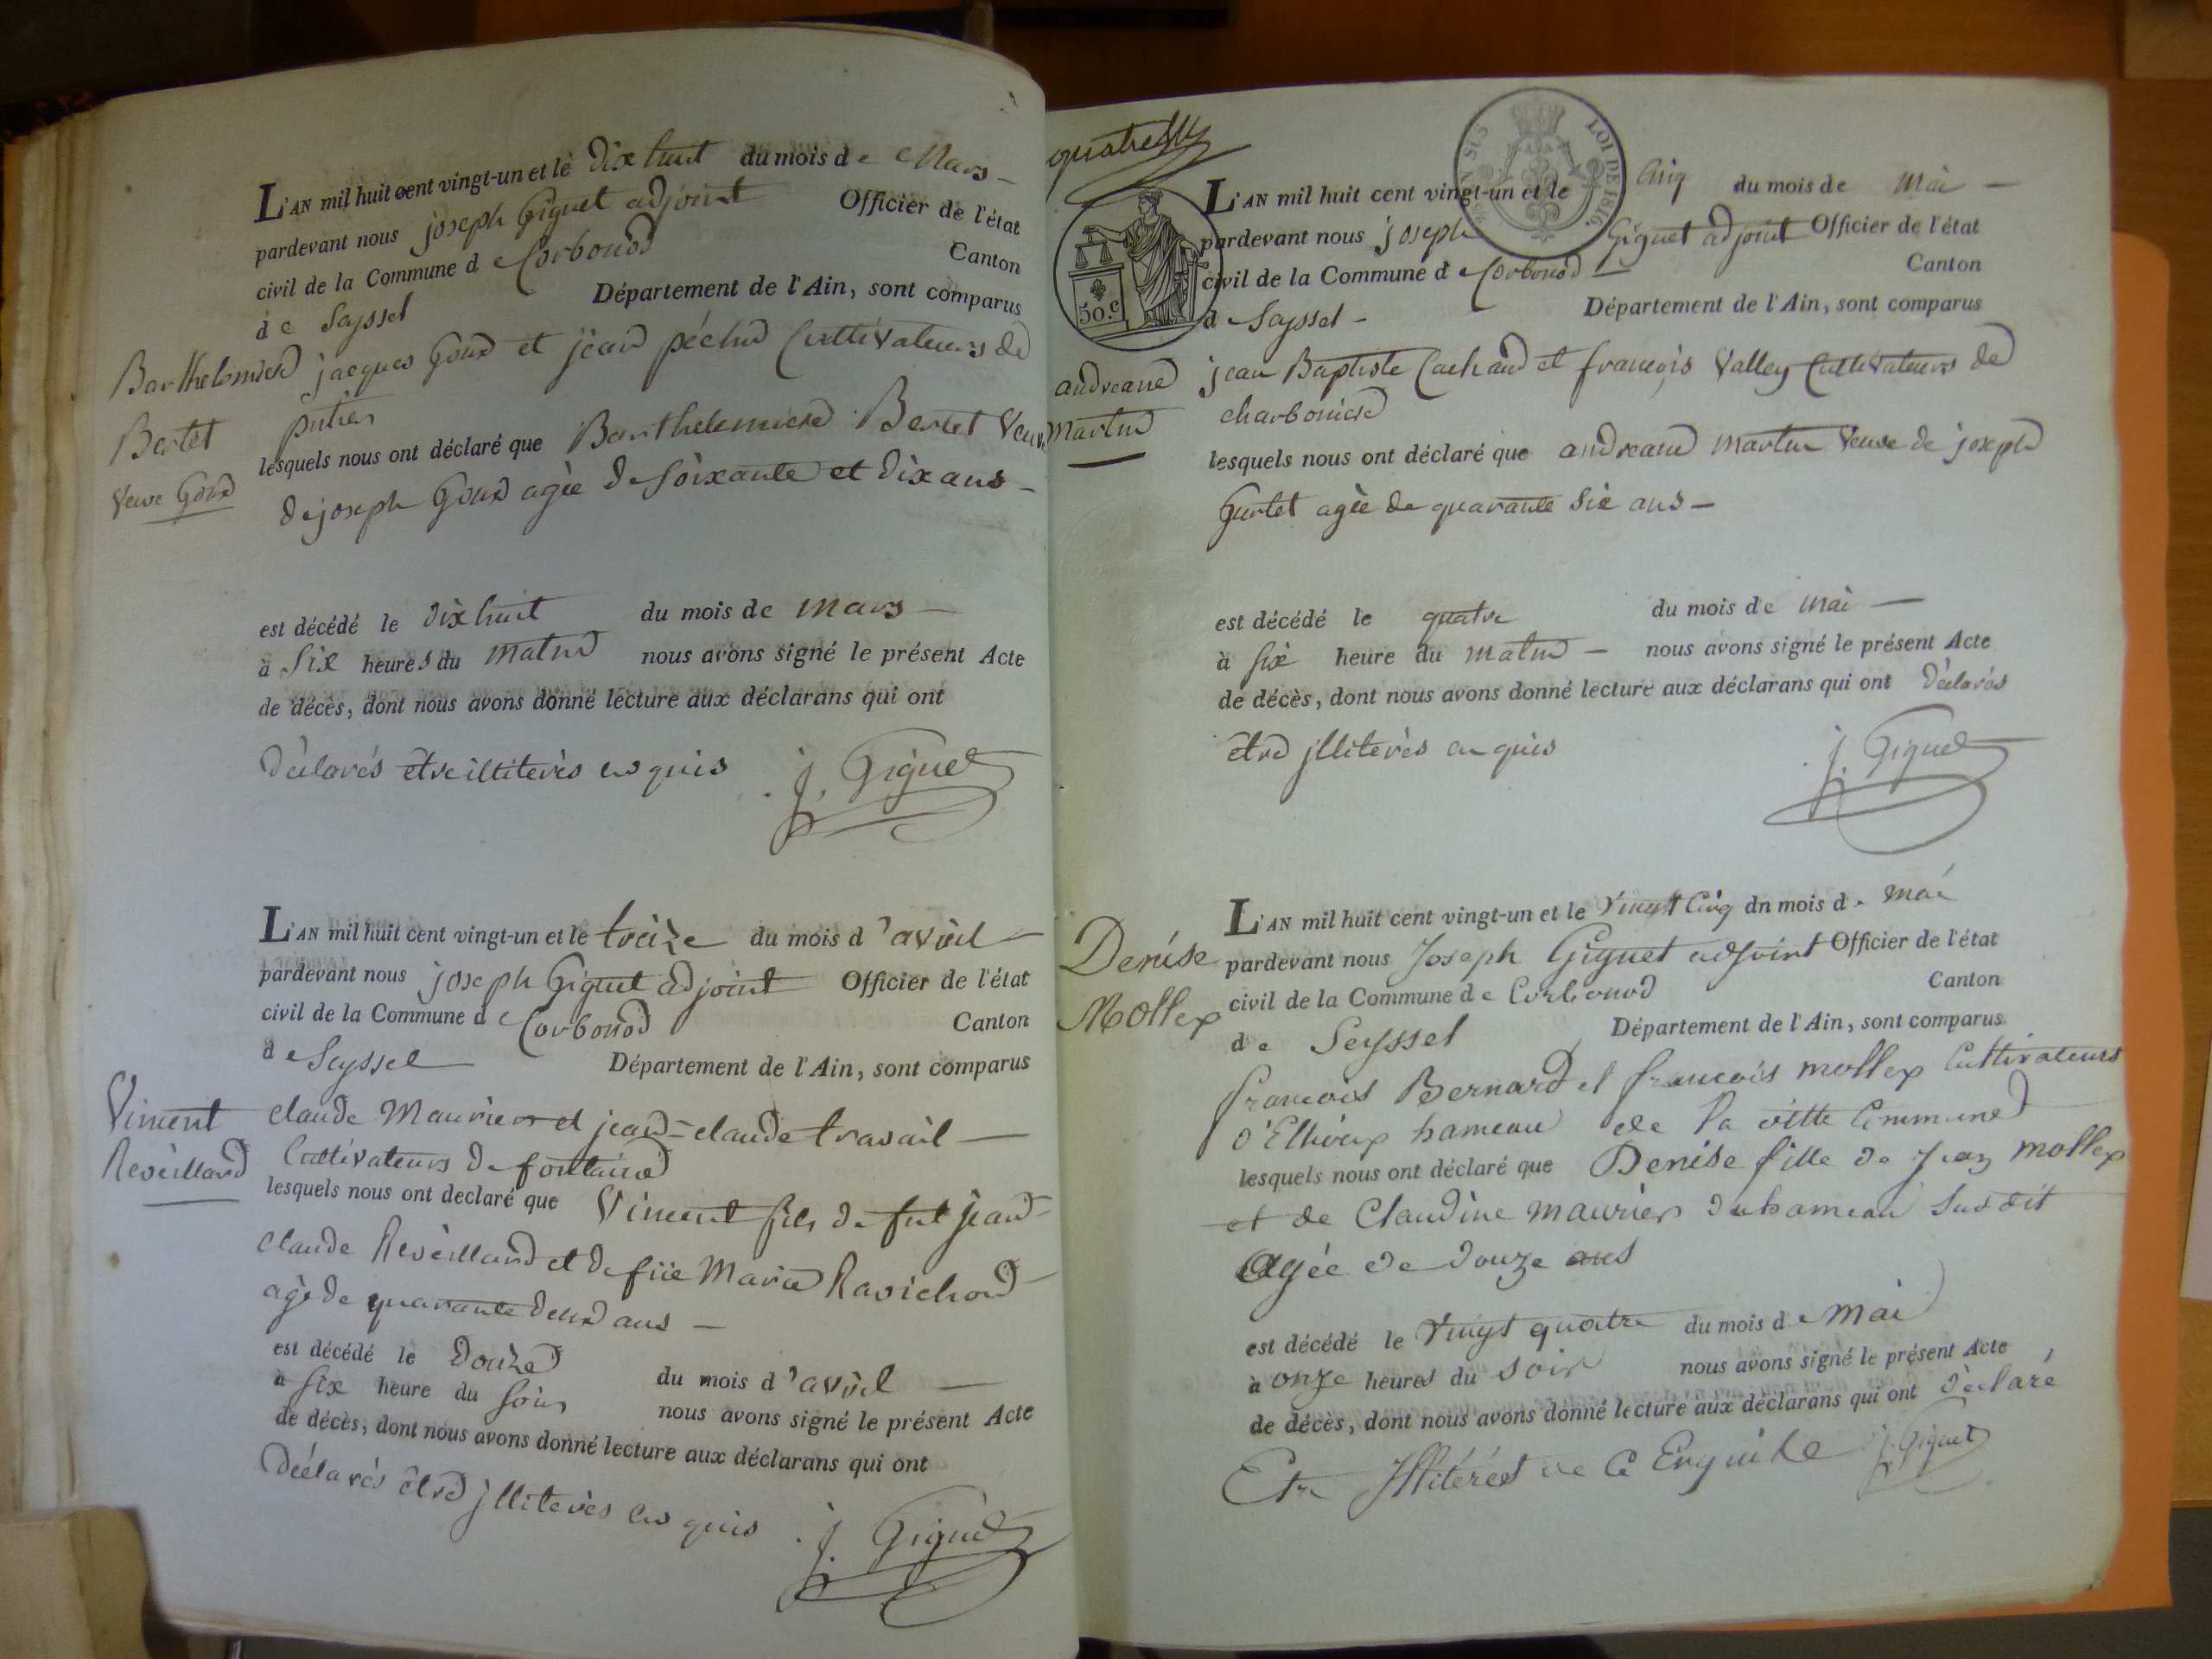 L'AN mil huit cent vingt-un et le dix huit du mois de Mars
pardevant nous joseph Giguet adjoint Officier de l'état
civil de la Commune de Corbonod Canton
de Seyssel Département de l'Ain, sont comparus
Barthelemied
Bertet
veuve Goux
jacques Goux et jean péclud Cultivateurs de
lesquels nous ont déclaré que Barthelemiere Bertet veuve
de joseph Goux agèe de soixante et dix ans
est décédé le dix huit du mois de mars
à six heures du matin nous avons signé le présent Acte
de décès, dont nous avons donné lecture aux déclarans qui ont
déclarés etre illiterès en quis
j. Giguet
L'AN mil huit cent vingt-un et le treize du mois d'avril
pardevant nous joseph Giguet adjoint Officier de l'état
civil de la Commune de Corbonod Canton
de Seyssel Département de l'Ain, sont comparus
Vincent
Revèilland
claude Maurier et jean-claude travail
Cultivateurs de fontaine
lesquels nous ont declaré que Vincent fils de fut jean
claude Revèilland et de füe Marie Ravichon
agè de quarante deux ans
est décédé le douze du mois d'avril
à six heure du soir nous avons signé le présent Acte
de décès, dont nous avons donné lecture aux déclarans qui ont
déclarés être jlliterès en quis
j. Giguet
LOI DE 1816.
50.c
L'AN mil huit cent vingt-un et le cinq du mois de mai
pardevant nous joseph Giguet adjoint Officier de l'état
civil de la Commune de Corbonod Canton
de Seyssel Département de l'Ain, sont comparus
andreane
martin
jean Baptiste Cachaud et françois Valley Cultivateurs de
charboniere
lesquels nous ont déclaré que andreane martin veuve de joseph
Gurtet agèe de quarante six ans
est décédé le quatre du mois de mai
à six heure du matin nous avons signé le présent Acte
de décès, dont nous avons donné lecture aux déclarans qui ont déclarés
être jlliterès en quis
j. Giguet
L'AN mil huit cent vingt-un et le vingt cinq dn mois de mai
pardevant nous Joseph Giguet adjoint Officier de l'état
civil de la Commune de Corbonod Canton
de Seyssel Département de l'Ain, sont comparus
Denise
Mollex
francois Bernard et francois mollex Cultivateurs
d'Eilloux hameau de la ditte Commune
lesquels nous ont déclaré que Denise fille de Jean mollex
et de Claudine maurier du hameau susdit
agée de douze ans
est décédé le vingt quatre du mois de mai
à onze heures du soir nous avons signé le présent Acte
de décès, dont nous avons donné lecture aux déclarans qui ont déclaré
Etre Illitérés de ce Enquite j. Giguet